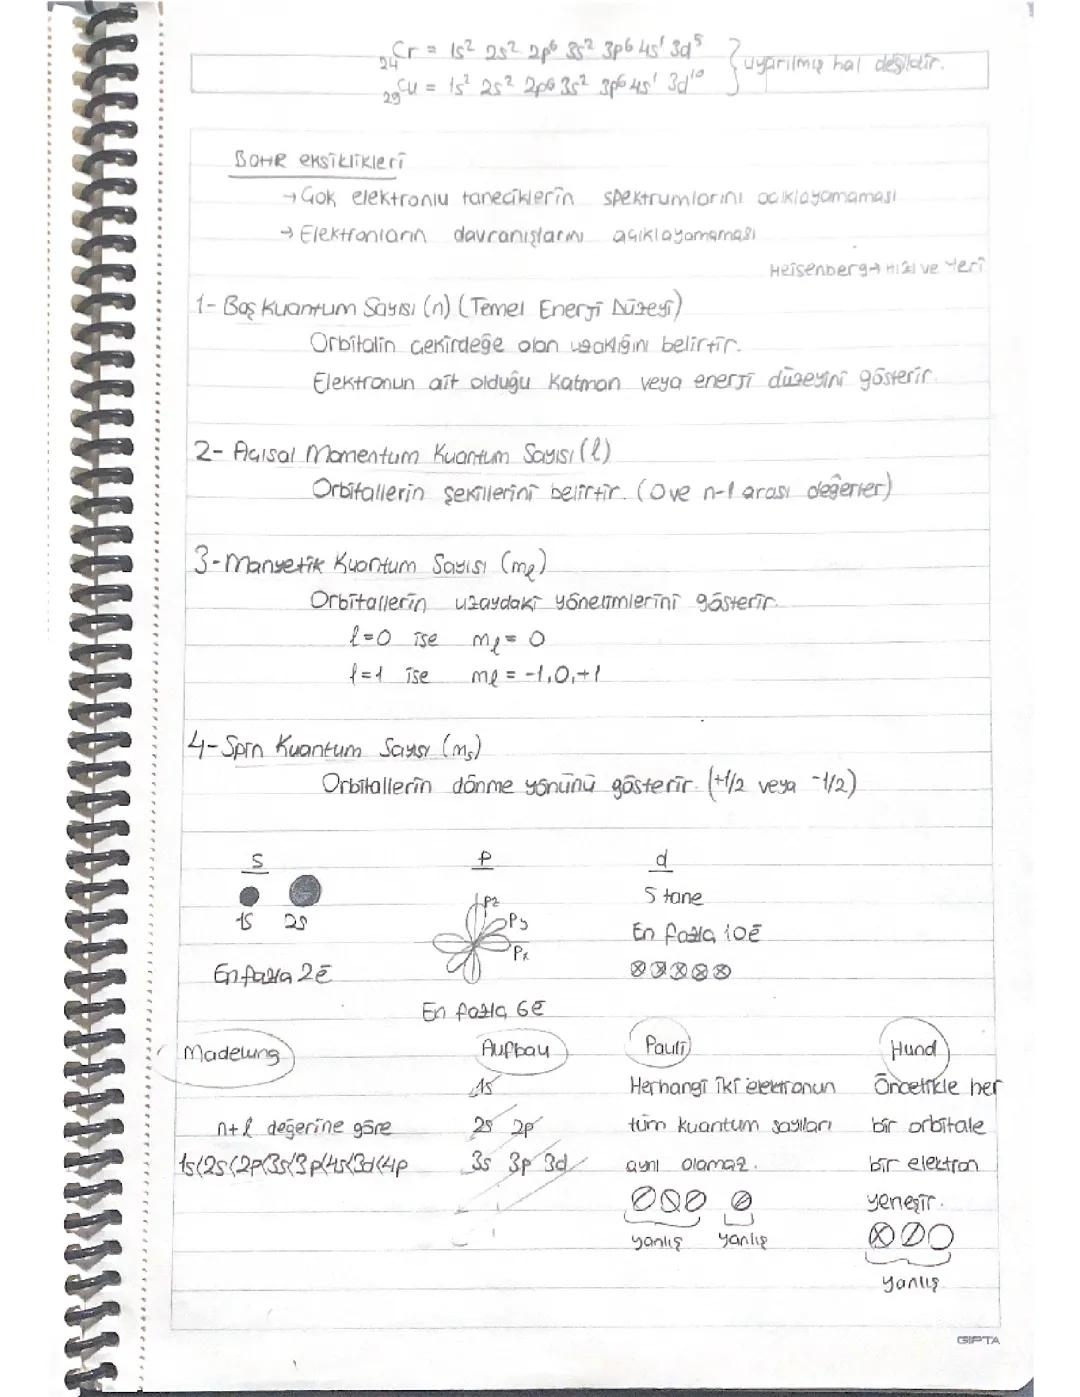 24Cr = 1s² 2s² 2p⁶ 3s² 3p⁶ 4s¹ 3d⁵
29Cu = 1s² 2s² 2p⁶ 3s² 3p⁶ 4s¹ 3d¹⁰
uyarılmış hal değildir.
BOHR eksiklikleri
→ Çok elektronlu taneciklerin spektrumlarını açıklayamaması
→ Elektronların davranışlarını açıklayamaması
Heisenberg → Hızı ve Yeri
1- Baş Kuantum Sayısı (n) (Temel Enerji Düzeyi)
Orbitalin çekirdeğe olan uzaklığını belirtir.
Elektronun ait olduğu katman veya enerji düzeyini gösterir.
2- Açısal Momentum Kuantum Sayısı (l)
Orbitallerin şekillerini belirtir. (0 ve n-1 arası değerler)
3- Manyetik Kuantum Sayısı (ml)
Orbitallerin uzaydaki yönelimlerini gösterir.
l=0 ise ml = 0
l=1 ise ml = -1,0,+1
4- Spin Kuantum Sayısı (ms)
Orbitallerin dönme yönünü gösterir. (+1/2 veya -1/2)
s p d
1s 2s
Pz
Py
Px
5 tane
En fazla 10e⁻
En fazla 2e⁻
En fazla 6e⁻
Madelung
n+l değerine göre
1s<2s<2p<3s<3p<4s<3d<4p
Aufbau
1s
2s 2p
3s 3p 3d
Pauli
Herhangi iki elektronun
tüm kuantum sayıları
aynı olamaz.
yanlış yanlış
Hund
Öncelikle her
bir orbitale
bir elektron
yerleşir.
yanlış
GIPTA